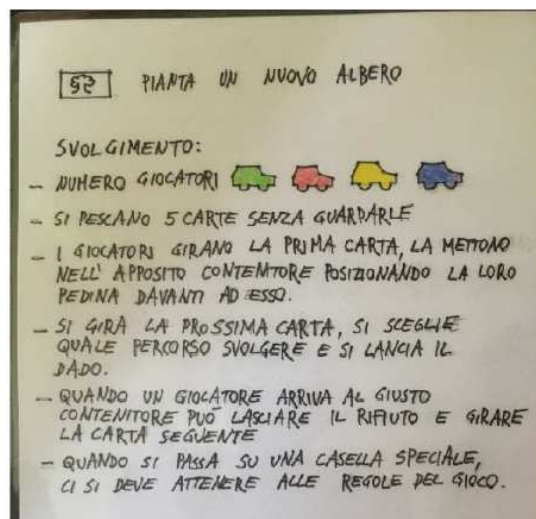 PIANTA UN NUOVO ALBERO
SVOLGIMENTO:
- NUMERO GIOCATORI
- SI PESCANO 5 CARTE SENZA GUARDARLE
- I GIOCATORI GIRANO LA PRIMA CARTA, LA METTONO
NELL' APPOSITO CONTENITORE POSIZIONANDO LA LORO
PEDINA DAVANTI AD ESSO.
- SI GIRA LA PROSSIMA CARTA, SI SCEGLIE
QUALE PERCORSO SVOLGERE E SI LANCIA IL
DADO.
- QUANDO UN GIOCATORE ARRIVA AL GIUSTO
CONTENITORE PUÒ LASCIARE IL RIFIUTO E GIRARE
LA CARTA SEGUENTE
- QUANDO SI PASSA SU UNA CASELLA SPECIALE,
CI SI DEVE ATTENERE ALLE REGOLE DEL GIOCO.